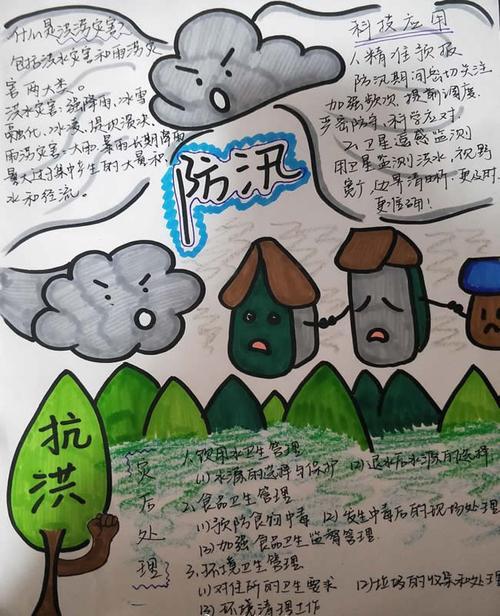 什么是洪涝灾害?
包括洪水灾害和雨涝灾
害两大类。
洪水灾害:强降雨、冰雪
融化、冰凌、堤坝溃决
雨涝灾害:大雨、暴雨长期降雨
量过于集中产生的大量积
水和径流。
科技应用
1.精准预报
防汛期间密切关注
加强频次,提前调度,
严密防守,科学应对
2.卫星遥感监测
用卫星监测洪水,视野
宽广、边界清晰,更及时、
更准确!
防汛
抗洪
灾后处理
1.饮用水卫生管理
(1)水源的选择与保护 (2)退水后水源的选择
2.食品卫生管理
(1)预防食物中毒 (2)发生中毒后的现场处理
(3)加强食品卫生监督管理
3.环境卫生管理
(1)对住所的卫生要求 (2)垃圾的收集和处理
(3)环境清理工作